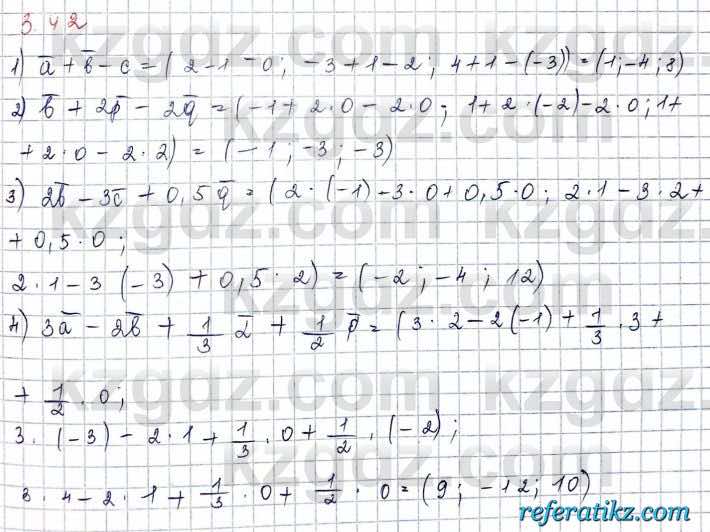 3.42
1) a̅ + b̅ - c = ( 2-1-0; -3+1-2; 4+1-(-3)) = (1;-4;8)
2) b̅ + 2p̅ - 2q̅ = (-1+2·0-2·0; 1+2·(-2)-2·0; 1+
+2·0-2·2) = (-1; -3; -3)
3) 2b̅ - 3c̅ + 0,5q̅ = (2·(-1)-3·0+0,5·0; 2·1-3·2+
+0,5·0;
2·1-3(-3)+0,5·2) = (-2; -4; 12)
4) 3a̅ - 2b̅ + 1/3 d̅ + 1/2 p̅ = (3·2-2(-1)+1/3·3+
+ 1/2·0;
3·(-3)-2·1+1/3·0+1/2·(-2);
3·4-2·1+1/3·0+1/2·0=(9; -12; 10)
kzgdz.com
referatikz.com